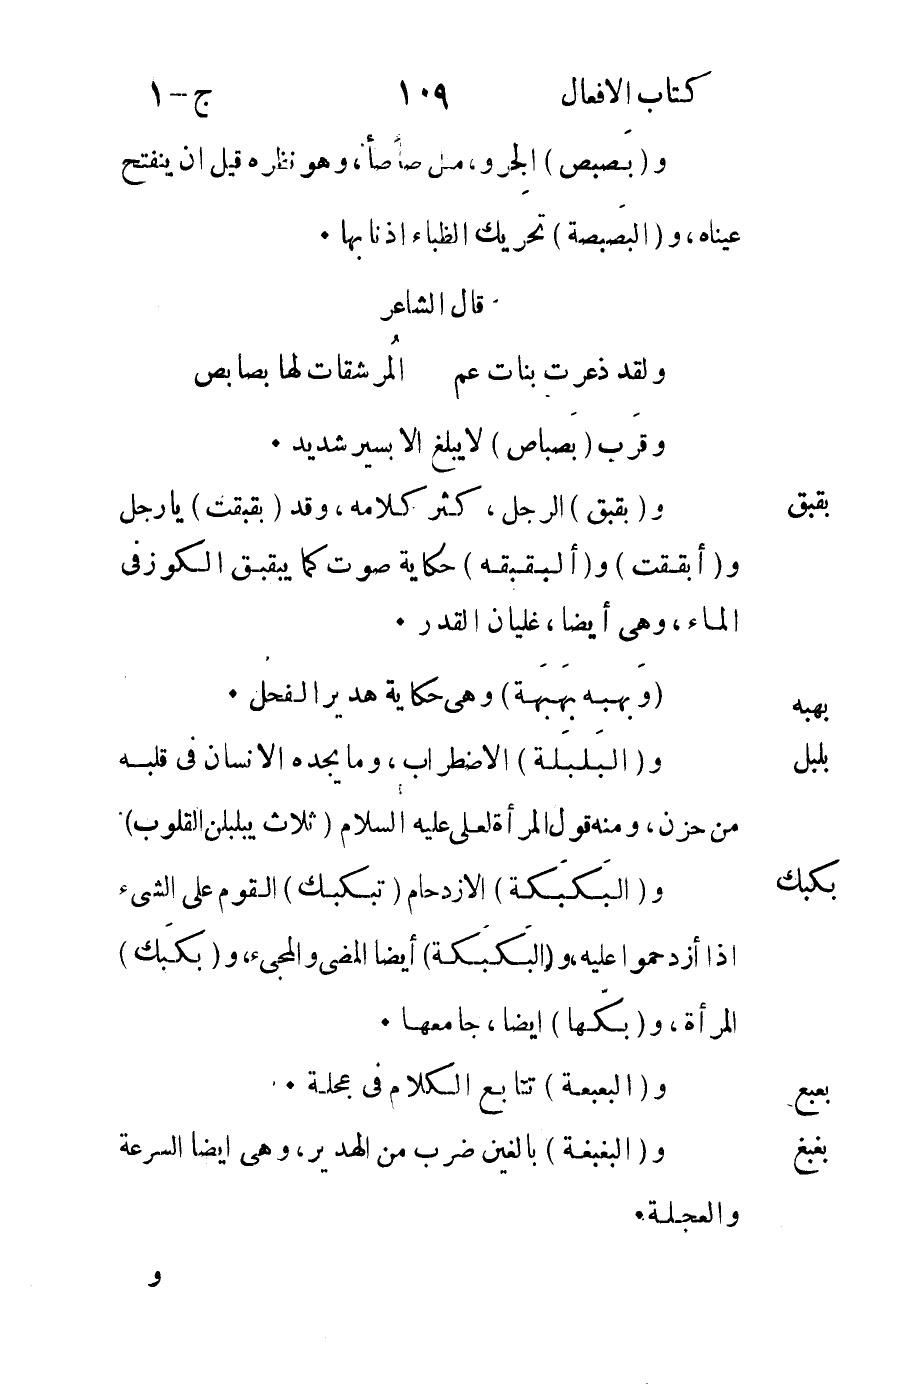 كتاب الافعال ١٠٩ ج-١
و (بَصبص) الجِرو، مثل صَأصأ، وهو نظره قبل ان ينفتح
عيناه، و (البَصبصة) تحريك الظباء اذنابها ٠
قال الشاعر
ولقد ذعرت بنات عم المُرشقات لها بصابص
وقَرب (بَصباص) لايبلغ الا بسير شديد ٠
بقبق
و (بقبق) الرجل، كثر كلامه، وقد (بقبقت) يارجل
و (أبققت) و (ألبقبقه) حكاية صوت كما يبقبق الكوز فى
الماء، وهى أيضا، غليان القدر ٠
بهبه
(وَ بهبه بَهبَهة) وهى حكاية هدير الفحل ٠
بلبل
و (البَلبَلة) الاضطراب، وما يجده الانسان فى قلبه
من حزن، ومنه قول المرأة لعلى عليه السلام (ثلاث يبلبلن القلوب)
بكبك
و (البَكبَكة) الازدحام (تبكبك) القوم على الشىء
اذا أزدحموا عليه، و (البَكبَكة) أيضا المضى والمجىء، و (بكبَك)
المرأة، و (بكّها) ايضا، جامعها ٠
بعبع
و (البعبعة) تتابع الكلام فى عجلة ٠
بغبغ
و (البغبغة) بالغين ضرب من الهدير، وهى ايضا السرعة
والعجلة ٠
و